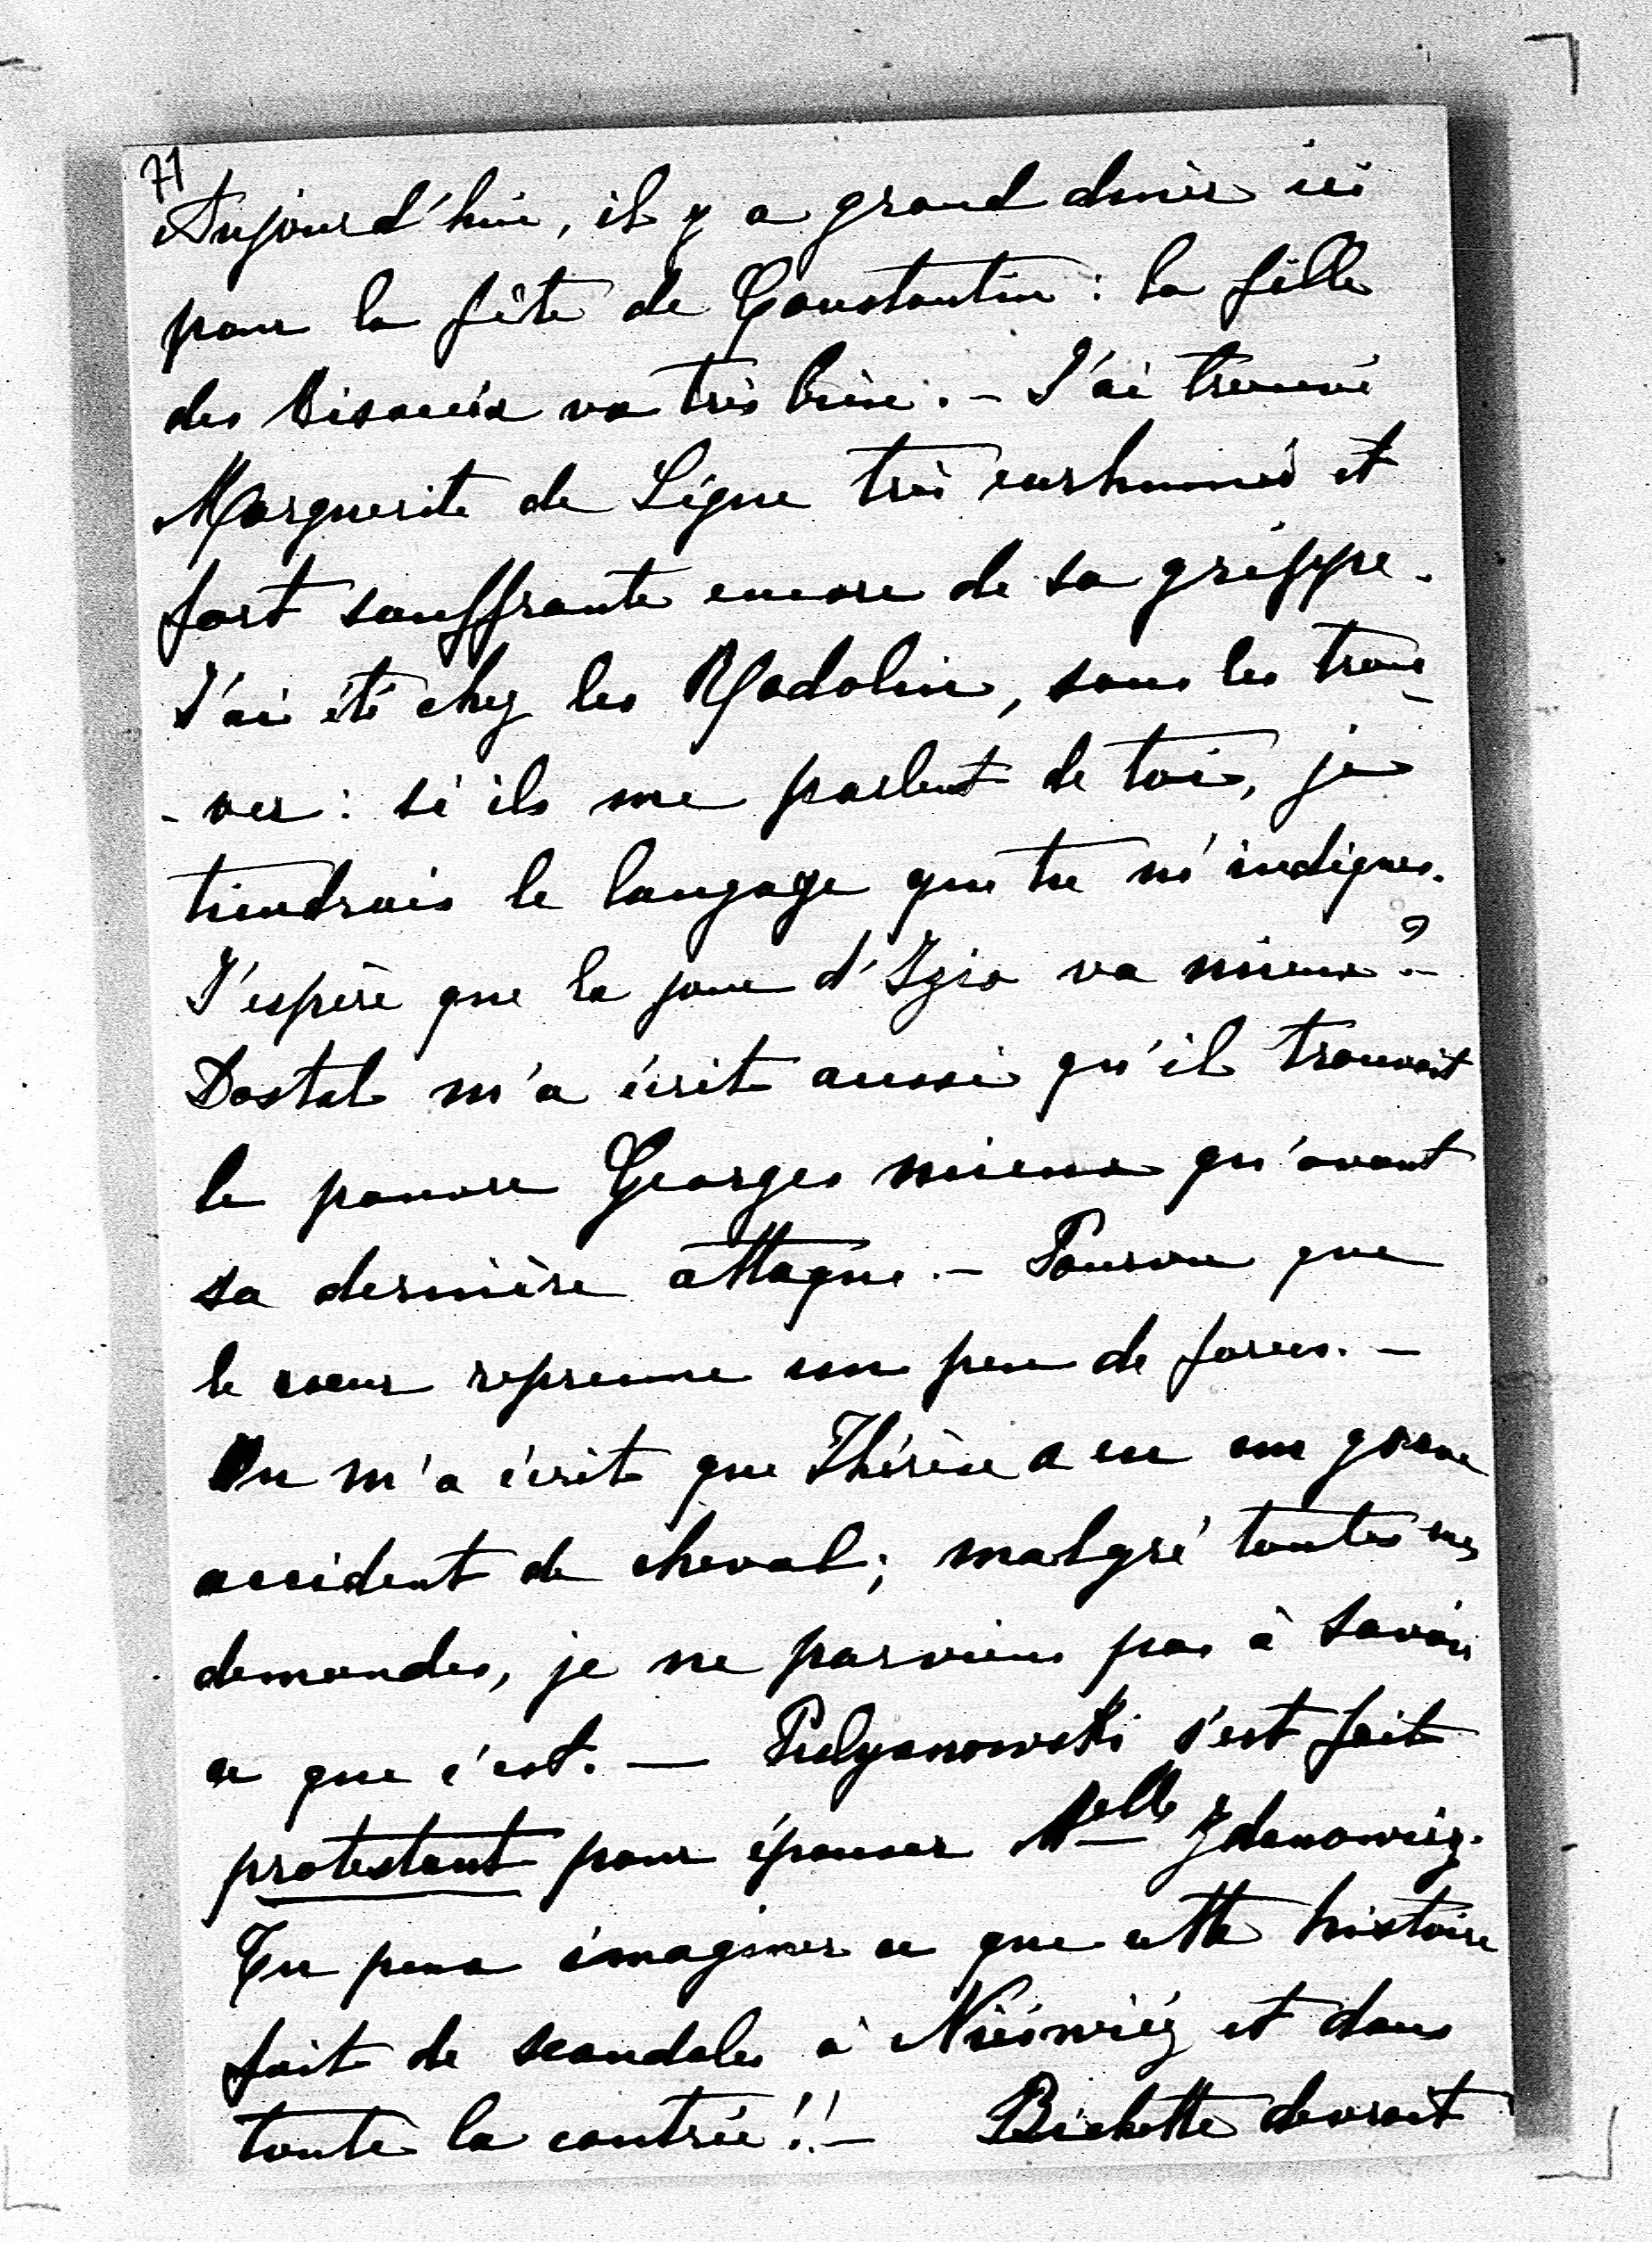 71
Aujourd'hui, il y a grand diner ici
pour la fête de Constantin : la fille
des va très bien. – J'ai trouvé
Marguerite de Ligne très enrhumée et
fort souffrante encore de sa grippe.
J'ai été chez les Radolin, sans les trou-
-ver : si ils me parlent de toi, je
tiendrais le langage que tu m'indiques.
J'espère que la joue d'Izio va mieux ? –
Dostal m'a écrit aussi qu'il trouvait
le pauvre Georges mieux qu'avant
sa dernière attaque. – Pourvu que
le cœur reprenne un peu de forces. –
On m'a écrit que Thérèse a eu un grave
accident de cheval ; malgré toutes mes
demandes, je ne parviens pas à savoir
ce que c'est. — s'est fait
protestant pour épouser Melle Zdanowicz.
Tu peux imaginer ce que cette histoire
fait de scandales à Nieświéz et dans
toute la contrée !! – Bichette devrait